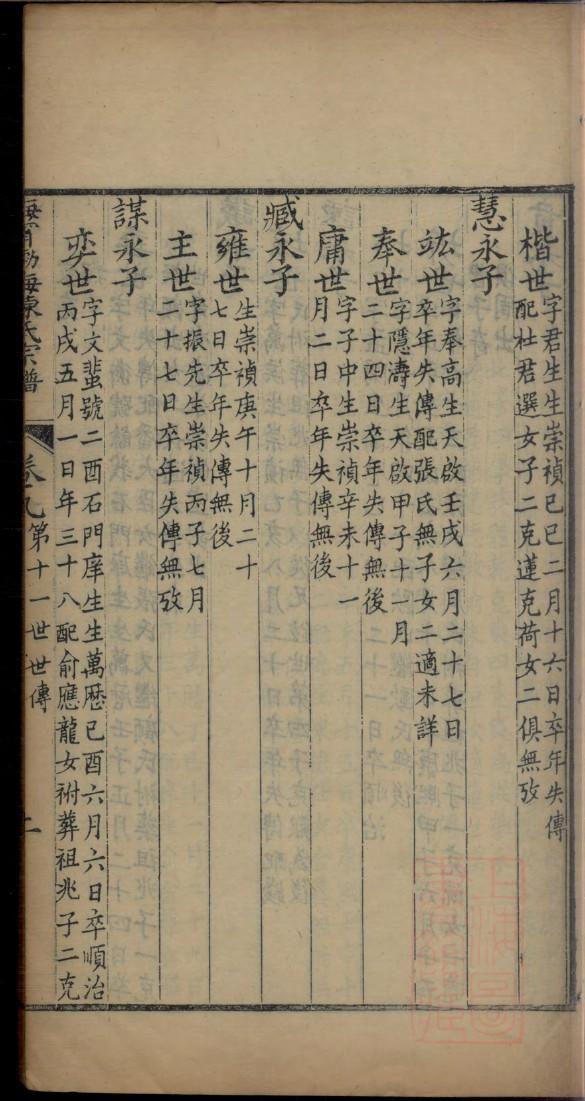 楷世
字君生生崇禎己巳二月十六日卒年失傳
配杜君選女子二克蓮克荷女二俱無攷
慧永子
竑世
字奉高生天啟壬戌六月二十七日
卒年失傳配張氏無子女二適未詳
奉世
字隱濤生天啟甲子十一月
二十四日卒年失傳無後
庸世
字子中生崇禎辛未十一
月二日卒年失傳無後
臧永子
雍世
生崇禎庚午十月二十
七日卒年失傳無後
主世
字振先生崇禎丙子七月
二十七日卒年失傳無攷
謀永子
奕世
字文蜚號二酉石門庠生生萬歷己酉六月六日卒順治
丙戌五月一日年三十八配俞應龍女祔葬祖兆子二克
海寧渤海陳氏宗譜
卷九第十一世世傳
二